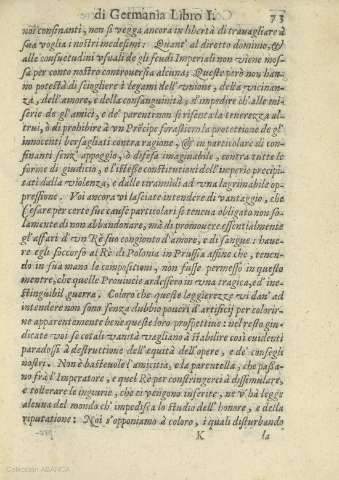 di Germania Libro I.
73
noi confinanti, non si vegga ancora in libertà di travagliare à
sua voglia i nostri medesimi: Quant' al diretto dominio, &
alle consuetudini vsuali de gli feudi Imperiali non viene mos-
sa per conto nostro controuersia alcuna: Queste però non han-
no potestà di sciogliere i legami dell'vnione, della vicinan-
za, dell'amore, e della consanguinità, d'impedire ch'alle mi-
serie de gl'amici, e de' parenti non si risenta la tenerezza al-
trui, ò di prohibire à vn Prēcipe forastiero la protettione de gl'
innocenti bersagliati contra ragione, & in particolare di con-
finanti senz'appoggio, ò difesa imaginabile, contra tutte le
forme di giudicio, e l'istesse constitutioni dell'imperio precipi-
tati dalla violenza, e dalle tirannidi ad vna lagrimabile op-
pressione. Voi ancora vi lasciate intendere di vantaggio, che
Cesare per certe sue cause particolari si teneua obligato non so-
lamente di non abbandonare, mà di promouere essentialmente
gl'affari d'vn Rè suo congionto d'amore, e di sangue: haue-
re egli soccorso al Rè di Polonia in Prussia affine che, tenen-
do in sua mano le compositioni, non fusse permesso in questo
mentre, che quelle Prouincie ardessero in vna tragica, ed ine-
stinguibil guerra. Coloro che queste leggierezze vi dan' ad
intendere non sono senza dubbio poueri d'artificij per colorir-
ne apparentemente bene queste loro prospettiue: nel resto giu-
dicate voi se cotali vantà vegliano à stabilire così euidenti
paradossi à destruttione dell'equità dell'opere, e de' consegli
nostri. Non è basteuole l'amicitia, e la parentella, che passa-
no frà l'Imperatore, e quel Rè per constringerci à dissimulare,
e tollerare le ingiurie, che ci vengono inferite, ne v'hà legge
alcuna del mondo ch' impedisca lo studio dell' honore, e della
riputatione: Noi s'opponiamo à coloro, i quali disturbando
K
la
Colección ABANCA